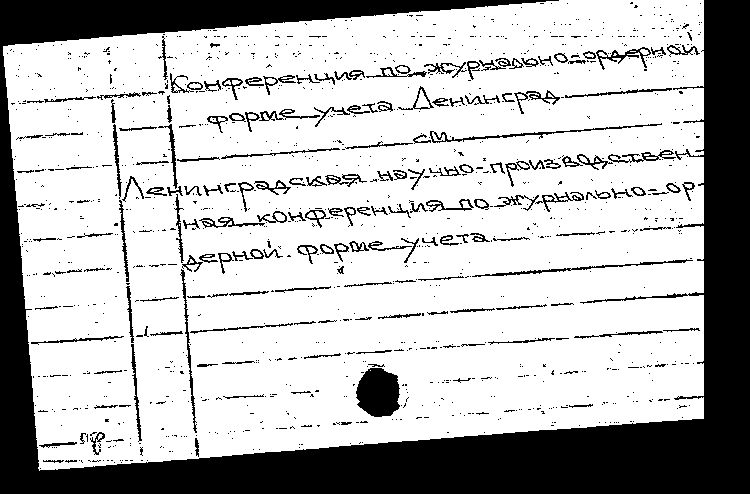 Конференция по журнально-ордерной
форме учета Ленинград
см.
Ленинградская научно-производствен-
ная конференция по журнально-ор-
дерной форме учета
пр